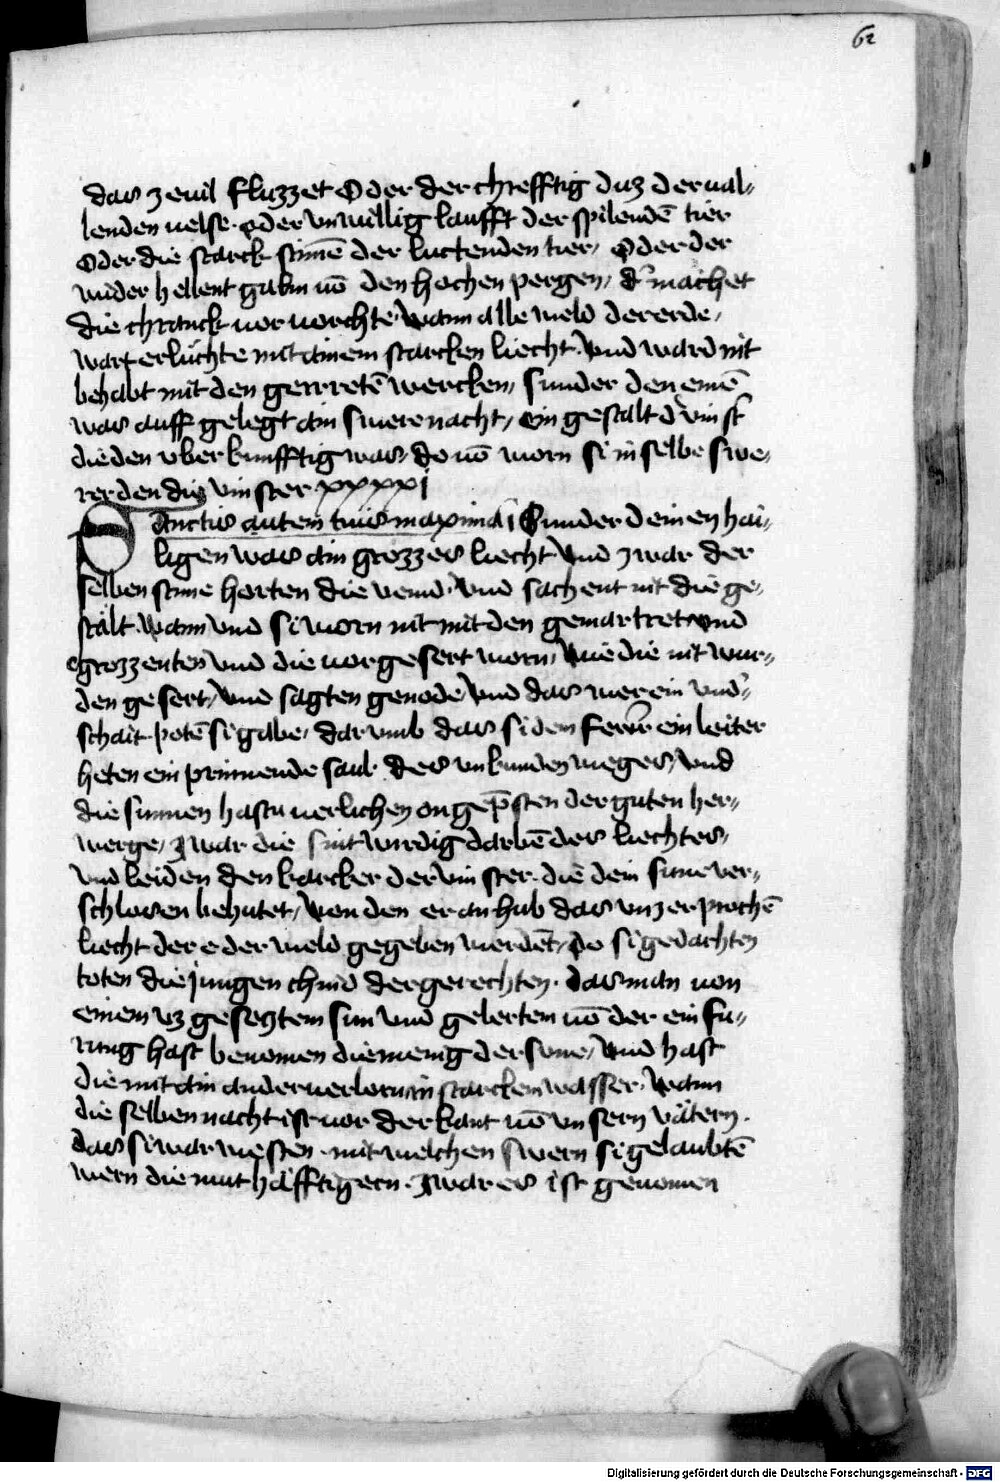 62
das zeuil fluzzet Oder der chrefftig duz der ual-
lenden uelse. oder vnwillig laufft der spilendē tier
Oder die starck stimē der luctenden tier, Oder der
wider hellent galm uō den hochen pergen, d' machet
die chranck uor uorchte. Wann alle weld der erde,
wart erlüchte mit ainem starcken liecht. Vnd ward nit
behabt mit den gerretē wercken, sunder den einē
was auff gelegt ain swere nacht, ein gestalt d' vinst'
die den vber kunfftig was, do uō worn si in selbe swe,
rer den die vinster xxxxj
Sanctis autem tuis maxima Sunder deinen hai,
ligen was ain grozzes liecht Vnd zwar der
selben stime horten die veind. Vnd sachent nit die ge,
stalt. Wann vnd si worn nit mit den gemartret vnd
grozzenten Vnd die uor gesert worn, Wie die nit wur,
den gesert, Vnd sagten genode Vnd das wer ein vnd'-
schait potē si gabe, dar vmb das si den fewr ein leiter
heten ein prinnende saul des vnkunden weges, Vnd
die sunnen hastu uerlichen on geprsten der guten her,
werge, Zwar die sint wirdig darbē des liechtes,
vnd leiden den karcker der vinster. die dein sune ver,
schlosen behutet, Von den er anhub das vnzerprochē
liecht der e der weld gegeben werdēt, Do si gedachten
toten die jungen chind der gerechten. das man von
einem vz gesetztem sun vnd gelertem uō der ein fu,
rung hast benomen die menig der sune, Vnd hast
die mit ain ander uerlorn in starckem wasser. Wann
die selben nacht ist uor derkant uō vnsern vätern.
das si war westen. mit welchen swern si gelaubtē
wern die muthäfftigern. Zwar es ist genomen
Digitalisierung gefördert durch die Deutsche Forschungsgemeinschaft - DFG